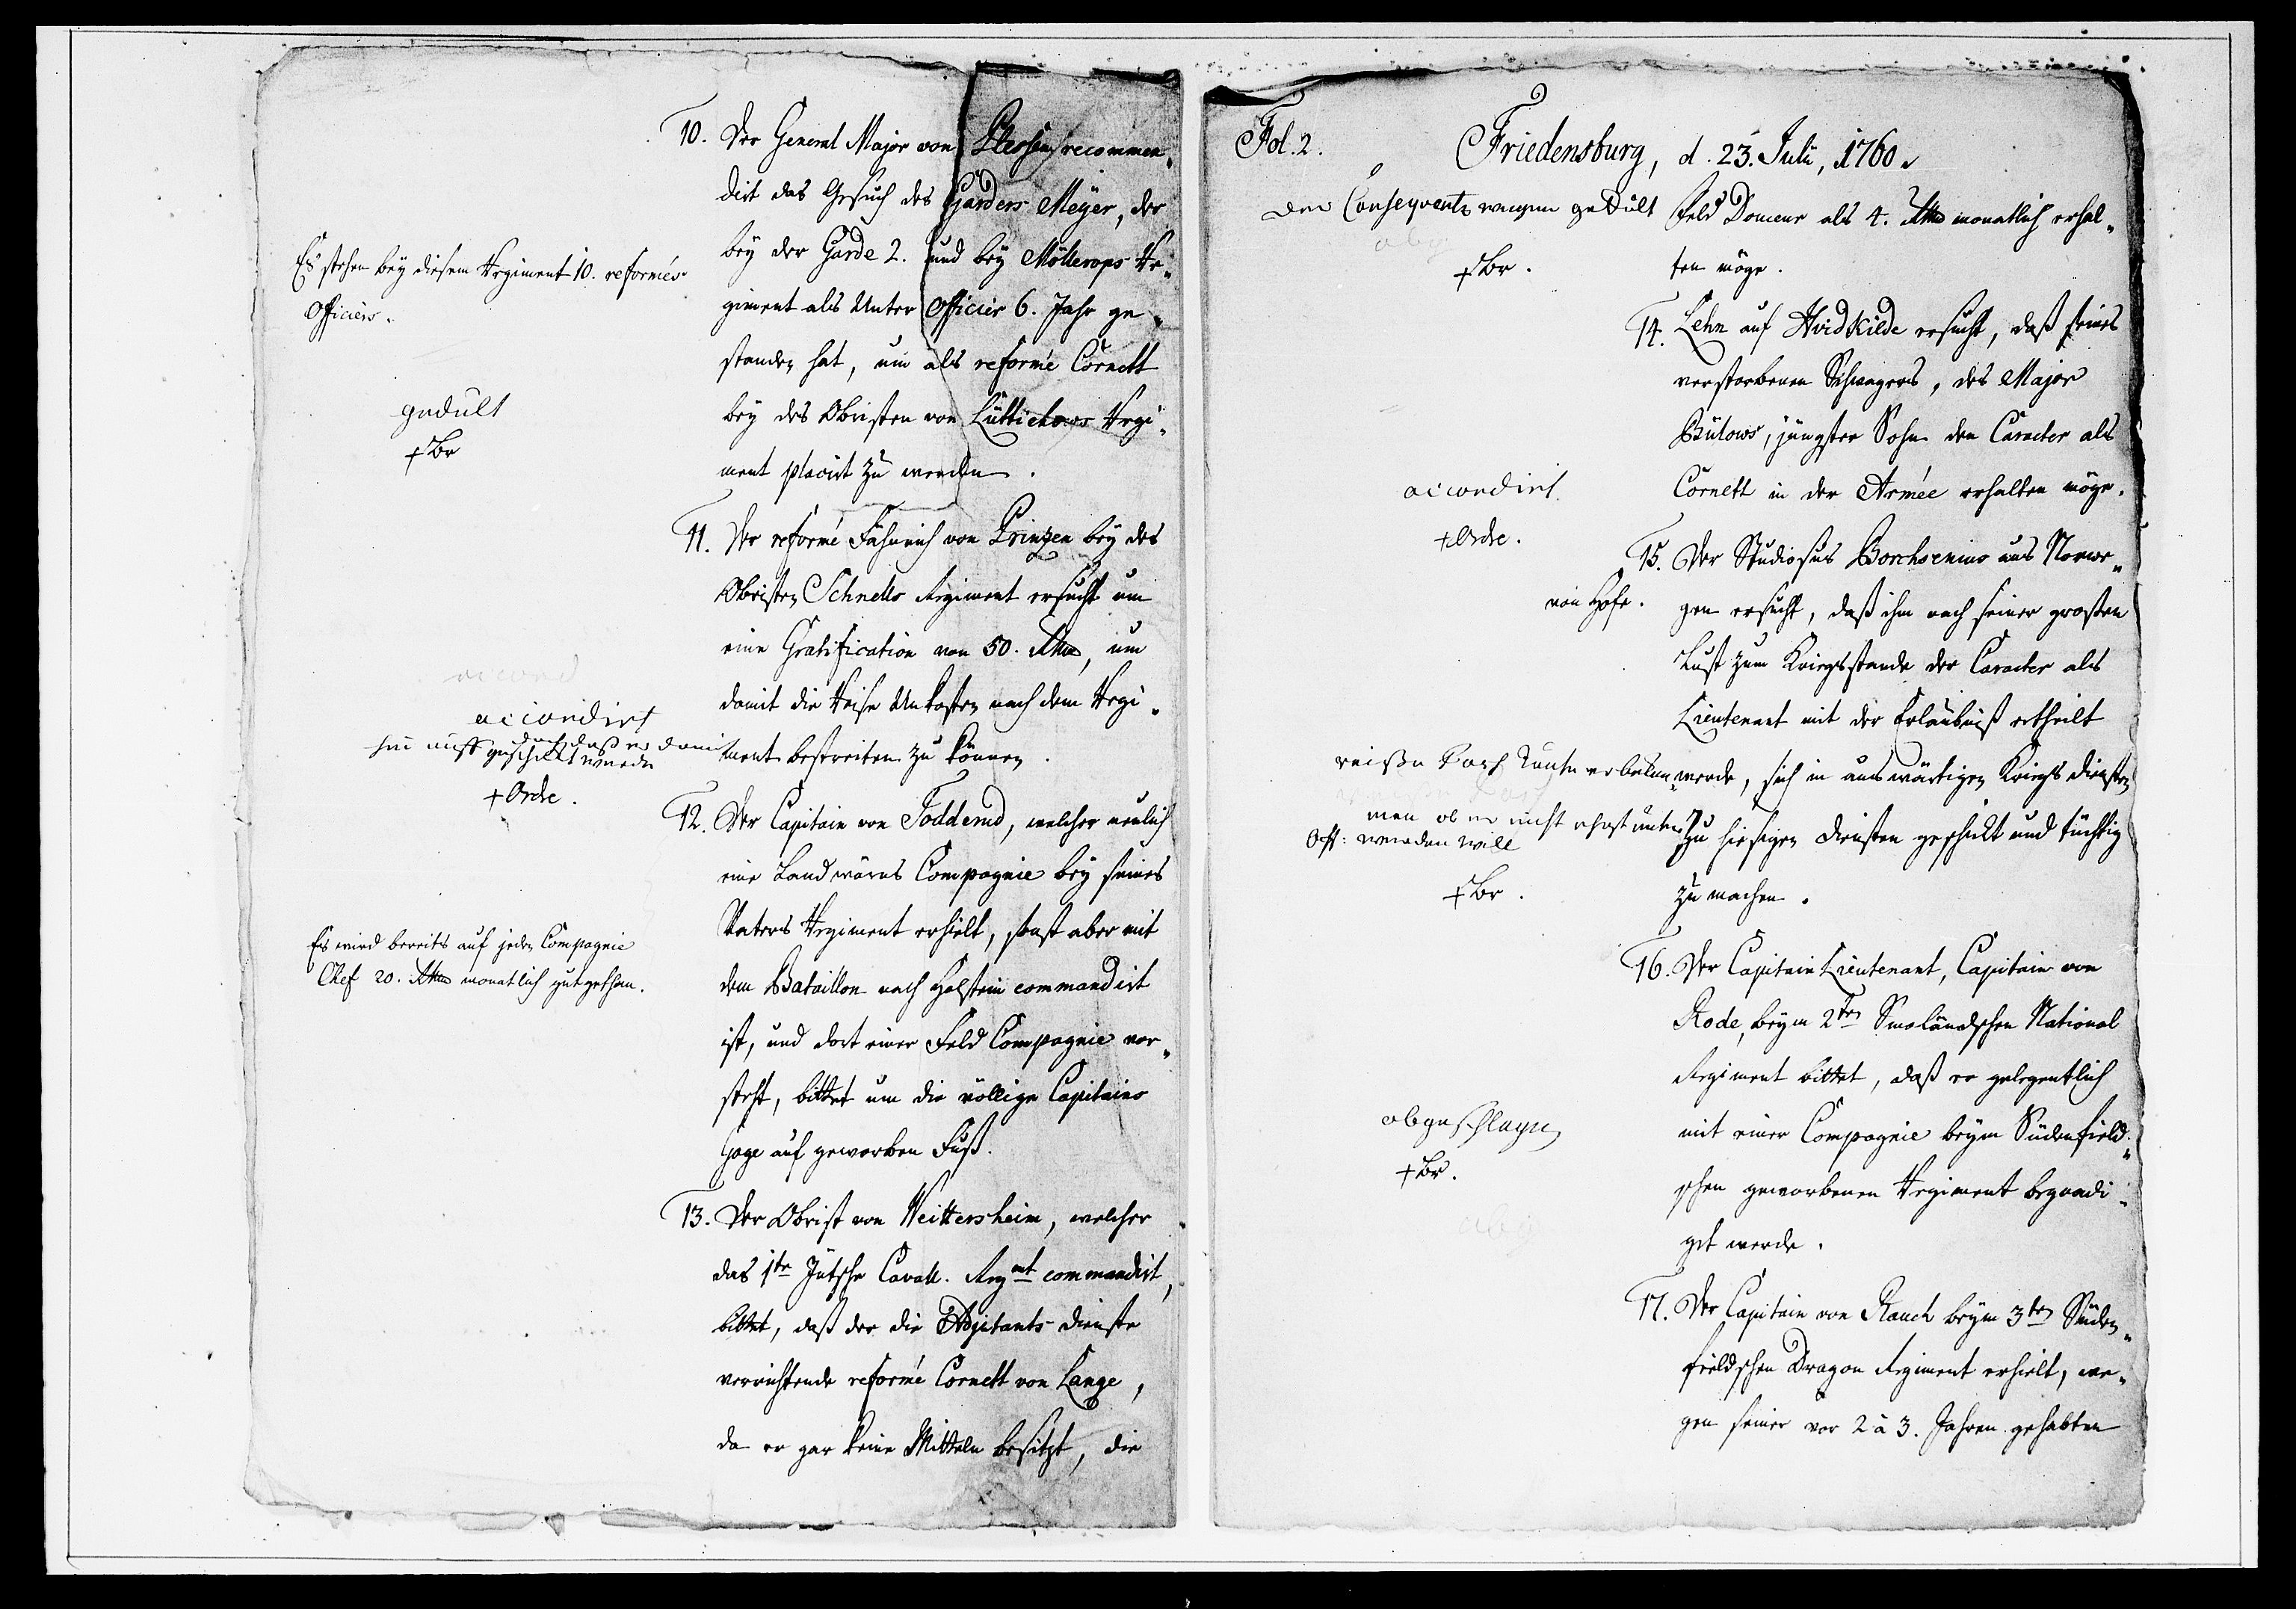 10. Der General Major von Plessen recommen„
dirt das Gesuch des Garders Meÿer, der
bey der Garde 2. und bey Möllerops Re„
giment als Unter Officier 6. Jahr ge„
standen hat, um als reformé Cornett
bey des Obristen von Lüttichows Regi„
ment placirt zu werden.
Es stehen bey diesem Regiment 10. reformés
Officiers.
gedult
+ Br
11. Der reformé Fähnrich von Prinzen bey des
Obristen Schnells Regiment ersucht um
eine Gratification von 50. Rthlr, um
damit die Reise Unkosten nach dem Regi„
ment bestreiten zu können.
accord
accordirt
doch daß er damit
hin auff geschickt werde
+ Ordre.
12. Der Capitain von Fodderud, welcher neulich
eine Landwärns Compagnie bey seines
Vaters Regiment erhielt, sonst aber mit
dem Bataillon nach Holstein commandirt
ist, und dort einer Feld Compagnie vor„
steht, bittet um die völlige Capitains
Gage auf geworben Fuß.
Es wird bereits auf jeden Compagnie
Chef 20. Rthlr monatlich gut gethan.
13. Der Obrist von Weittersheim, welcher
das 1te Jütsche Cavall. Regmt commandirt,
bittet, daß der die Adjitants dienste
verrichtende reformé Cornett von Lange,
da er gar keine Mitteln besitzt, die
Fol. 2.
Friedensburg, d. 23. Julii, 1760.
Feld Douceur als 4. Rthlr monatlich erhal„
ten möge.
Der Conseqvents wegen gedult
abg
+ Br.
14. Lehn auf Hvidkilde ersucht, daß seines
verstorbenen Schwagers, des Major
Bülows, jüngster Sohn den Caracter als
Cornett in der Armée erhalten möge.
accordirt.
+ Ordre.
15. Der Studiosus Borchsenius aus Norwe„
gen ersucht, daß ihm nach seiner grosten
Lust zum Kriegsstande der Caracter als
Lieutenant mit der Erlaubniß ertheilt
werde, sich in auswärtigen Kriegs diensten
zu hiesigen diensten geschickt und tüchtig
zu machen.
von Hofe.
men ob er nicht erst unter
Off: werden will
+ Br.
16. Der Capitain Lieutenant, Capitain von
Rode, beym 2ten Smaländschen National
Regiment bittet, daß er gelegentlich
mit einer Compagnie beym Südenfield„
schen geworbenen Regiment begnadi„
get werde.
abgeschlagen
+ Br.
abg
17. Der Capitain von Rauch beym 3ten Süden„
fieldschen Dragon Regiment erhielt, we„
gen seiner vor 2 à 3. Jahren gehabten